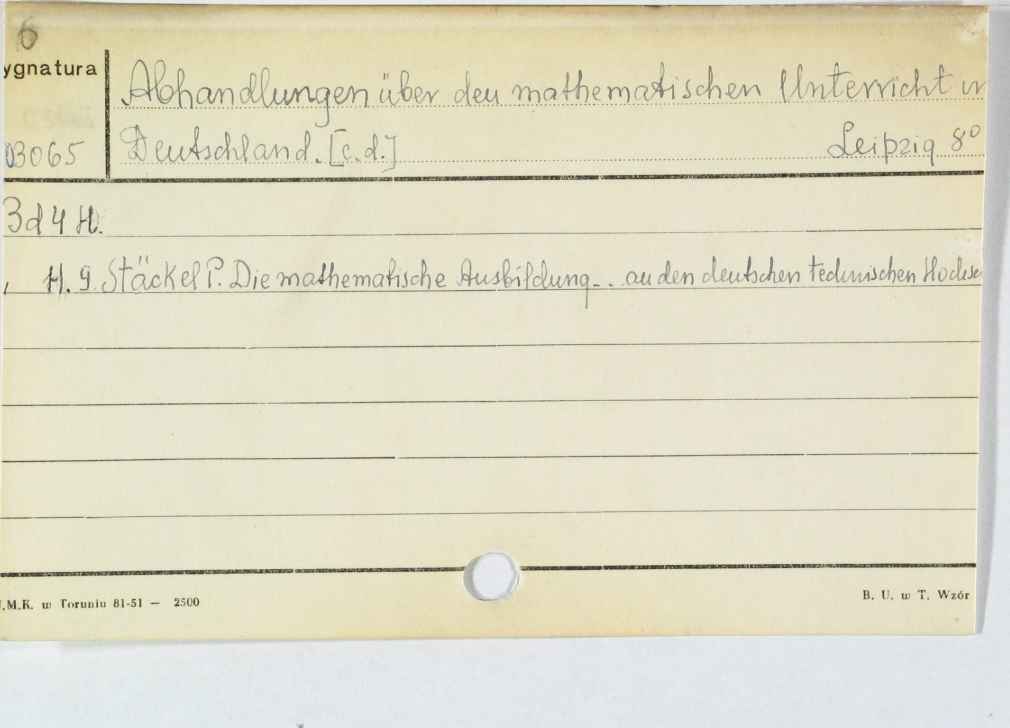 6
ygnatura
Abhandlungen über den mathematischen Unterricht in
03065 Deutschland. [c.d.] Leipzig 8°
3d 4 H.
H. 9. Stäckel P. Die mathematische Ausbildung... an den deutschen technischen Hochsc
.M.K. w Toruniu 81-51 — 2500 B. U. w T. Wzór